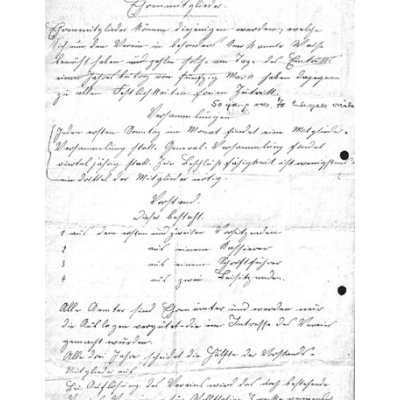 Ehrenmitglieder.
Ehrenmitglieder können diejenigen werden, welche
sich um den Verein in besonders
bemüht haben und zahlen solche am Tage des Eintritts
einen Jahresbeitrag von fünfzig Mark haben dagegen
zu allen Festlichkeiten freien Zutritt.
Versammlungen.
Jeden ersten Sonntag im Monat findet eine Mitglieder-
Versammlung statt. General-Versammlung findet
vierteljährig statt. Zur Beschlußfähigkeit ist wenigstens
ein Drittel der Mitglieder nötig.
Vorstand.
Dieser besteht.
1 aus dem ersten und zweiten Vorsitzenden
2 aus einem Kassierer
3 aus einem Schriftführer
4 aus zwei Beisitzenden.
Alle Aemter sind Ehrenämter und werden nur
die Auslagen vergütet die im Interesse des Vereins
gemacht wurden.
Alle drei Jahre scheidet die Hälfte des Vorstands-
Mitglieder aus
Bei Auflösung des Vereins wird das doch bestehende